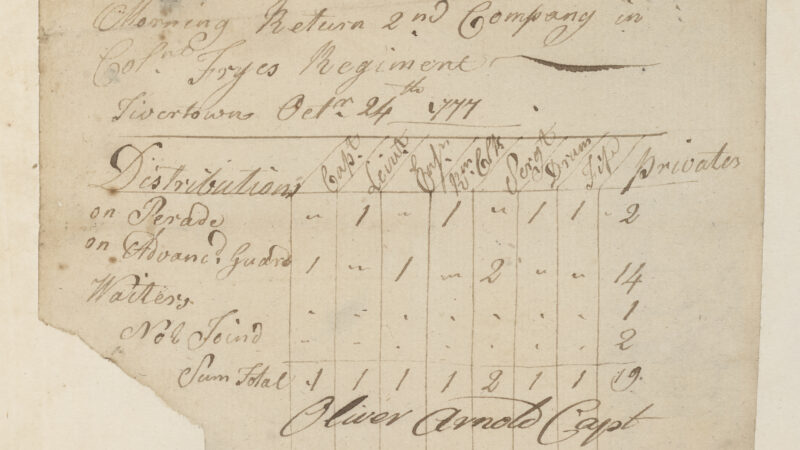 Morning Return 2nd Company in
Colnl Fryes Regiment
Tivertown Octr 24th 1777
Distributions Capt Lieut Ensn Qm Clk Sergt Drum Fife Privates
on Perade " 1 " 1 " 1 1 " 2
on Advancd Guard 1 " 1 " 2 " " 14
Waiters " " " " " " " 1
Not Joind " " " " " " " 2
Sum Total 1 1 1 1 2 1 1 19
Oliver Arnold Capt